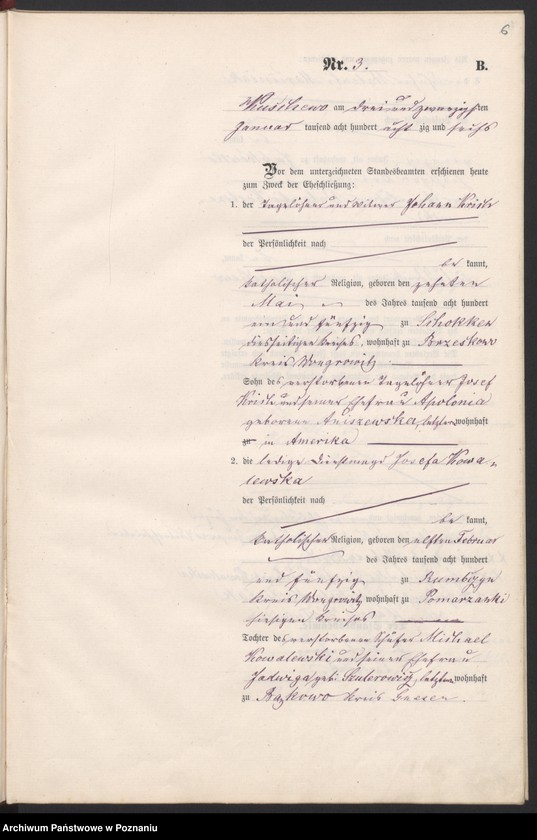 6
Nr. 3. B.
am drei und zwanzigsten
Januar tausend acht hundert acht zig und sechs
Vor dem unterzeichneten Standesbeamten erschienen heute
zum Zweck der Eheschließung:
1. der Tagelöhner und Witwer Johann
der Persönlichkeit nach
be kannt,
katholischer Religion, geboren den zehnten
Mai des Jahres tausend acht hundert
ein und fünfzig zu Schokken
diesseitigen Kreises, wohnhaft zu Brzeskowo
Kreis Wongrowitz
Sohn des verstorbenen Tagelöhner Josef
und seiner Ehefrau Apolonia
geborene Aniszewska, letztere wohnhaft
zu in Amerika
2. die ledige Dienstmagd Josefa Kowa-
lewska
der Persönlichkeit nach
be kannt,
katholischer Religion, geboren den elften Februar
des Jahres tausend acht hundert
und fünfzig zu
Kreis Wongrowitz wohnhaft zu Pomarzanki
hiesigen Kreises
Tochter des verstorbenen Schäfer Michael
Kowalewski und seiner Ehefrau
Jadwiga geb. letztere wohnhaft
zu Kreis Gnesen.
Archiwum Państwowe w Poznaniu